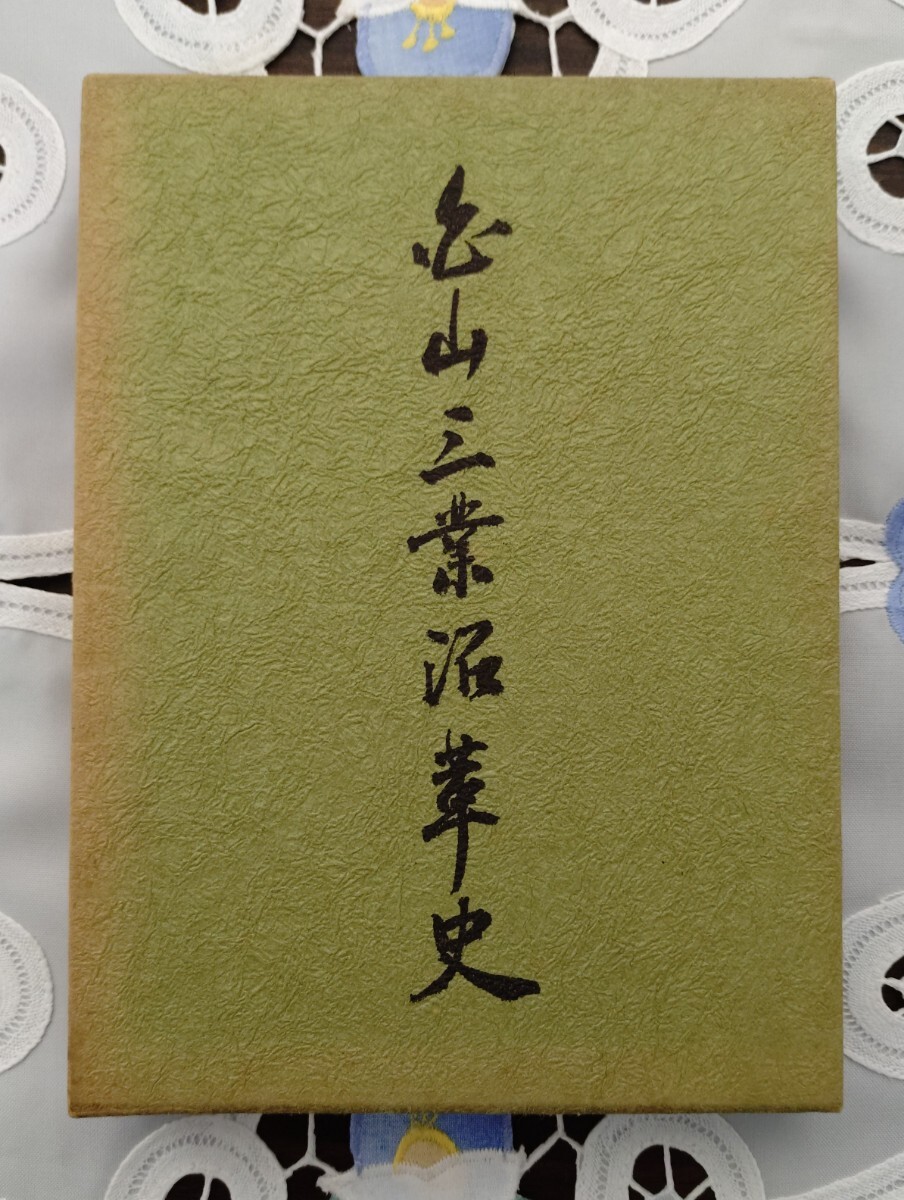 白山三業沿革史